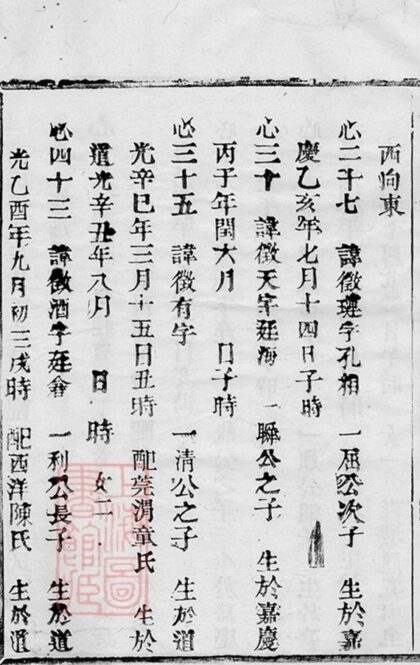 西向東
心二十七 諱徵字孔相 一屈公次子 生於嘉
慶乙亥年七月十四日子時
心三十 諱徵天字廷海 一聯公之子 生於嘉慶
丙子年閏六月 日子時
心三十五 諱徵有字 一清公之子 生於道
光辛巳年三月十五日丑時 配莞渭童氏 生於
道光辛丑年八月 日 時 女二
心四十三 諱徵酒字廷會 一利公長子 生於道
光乙酉年九月初三戌時 配西洋陳氏 生於道
上海圖書館藏